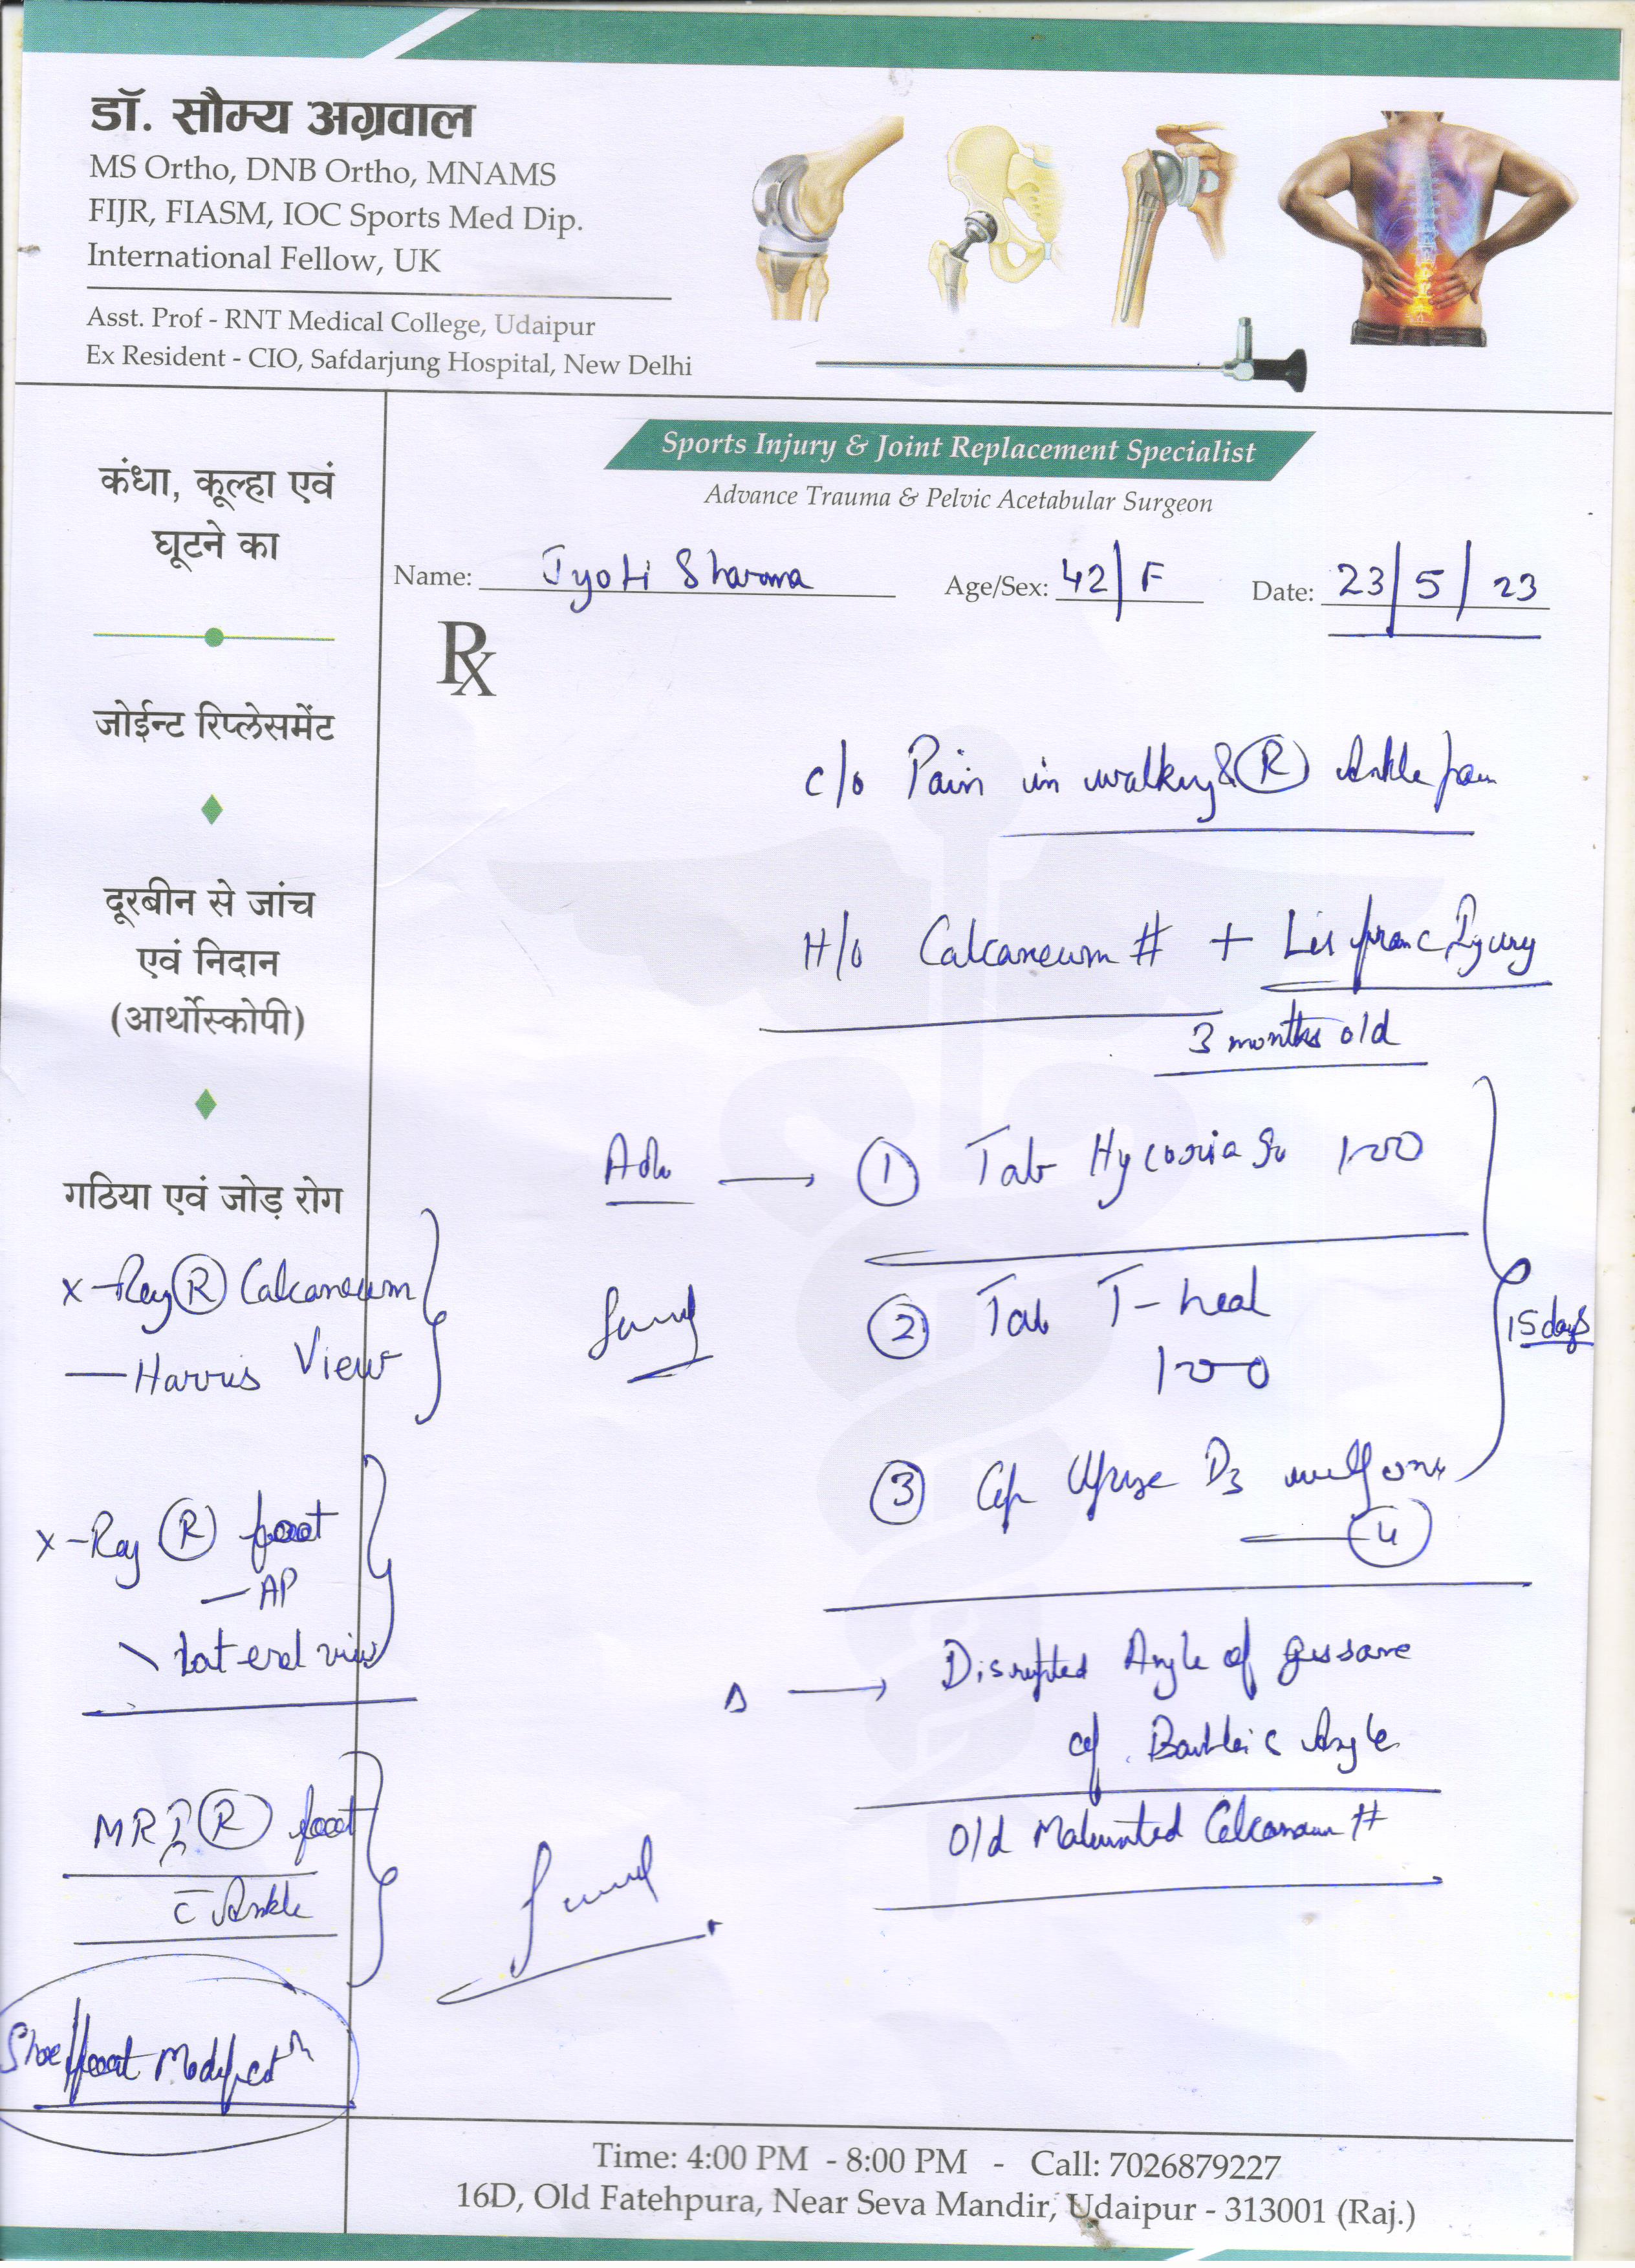 डॉ. सौम्य अग्रवाल
MS Ortho, DNB Ortho, MNAMS
FIJR, FIASM, IOC Sports Med Dip.
International Fellow, UK
Asst. Prof - RNT Medical College, Udaipur
Ex Resident - CIO, Safdarjung Hospital, New Delhi
Sports Injury & Joint Replacement Specialist
Advance Trauma & Pelvic Acetabular Surgeon
Name: Jyoti Sharma Age/Sex: 42/F Date: 23/5/23
Rx
कंधा, कूल्हा एवं
घूटने का
जोईन्ट रिप्लेसमेंट
दूरबीन से जांच
एवं निदान
(आर्थोस्कोपी)
गठिया एवं जोड़ रोग
X-Ray (R) Calcaneum
— Harris View
X-Ray (R) foot
— AP
\ Lateral view
MRI (R) foot
c̄ Ankle
Shoe/foot Modificatn
c/o Pain in walking & (R) Ankle pain
H/o Calcaneum # + Lisfranc Injury
3 months old
Adv → (1) Tab 100
(2) Tab T-heal
100
15 days
(3) Cap D3
(4)
Δ → Disrupted Angle of gissane
of Angle
Old Malunited Calcaneum #
Time: 4:00 PM - 8:00 PM - Call: 7026879227
16D, Old Fatehpura, Near Seva Mandir, Udaipur - 313001 (Raj.)